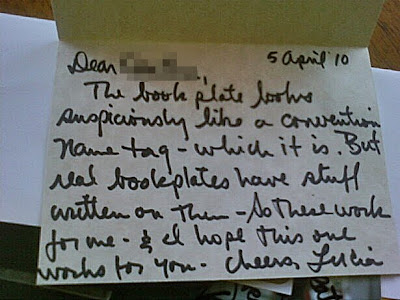 Dear
5 April '10
The book plate looks
suspiciously like a convention
name tag - which it is. But
real bookplates have stuff
written on them - so these work
for me - & I hope this one
works for you - Cheers, Lucia